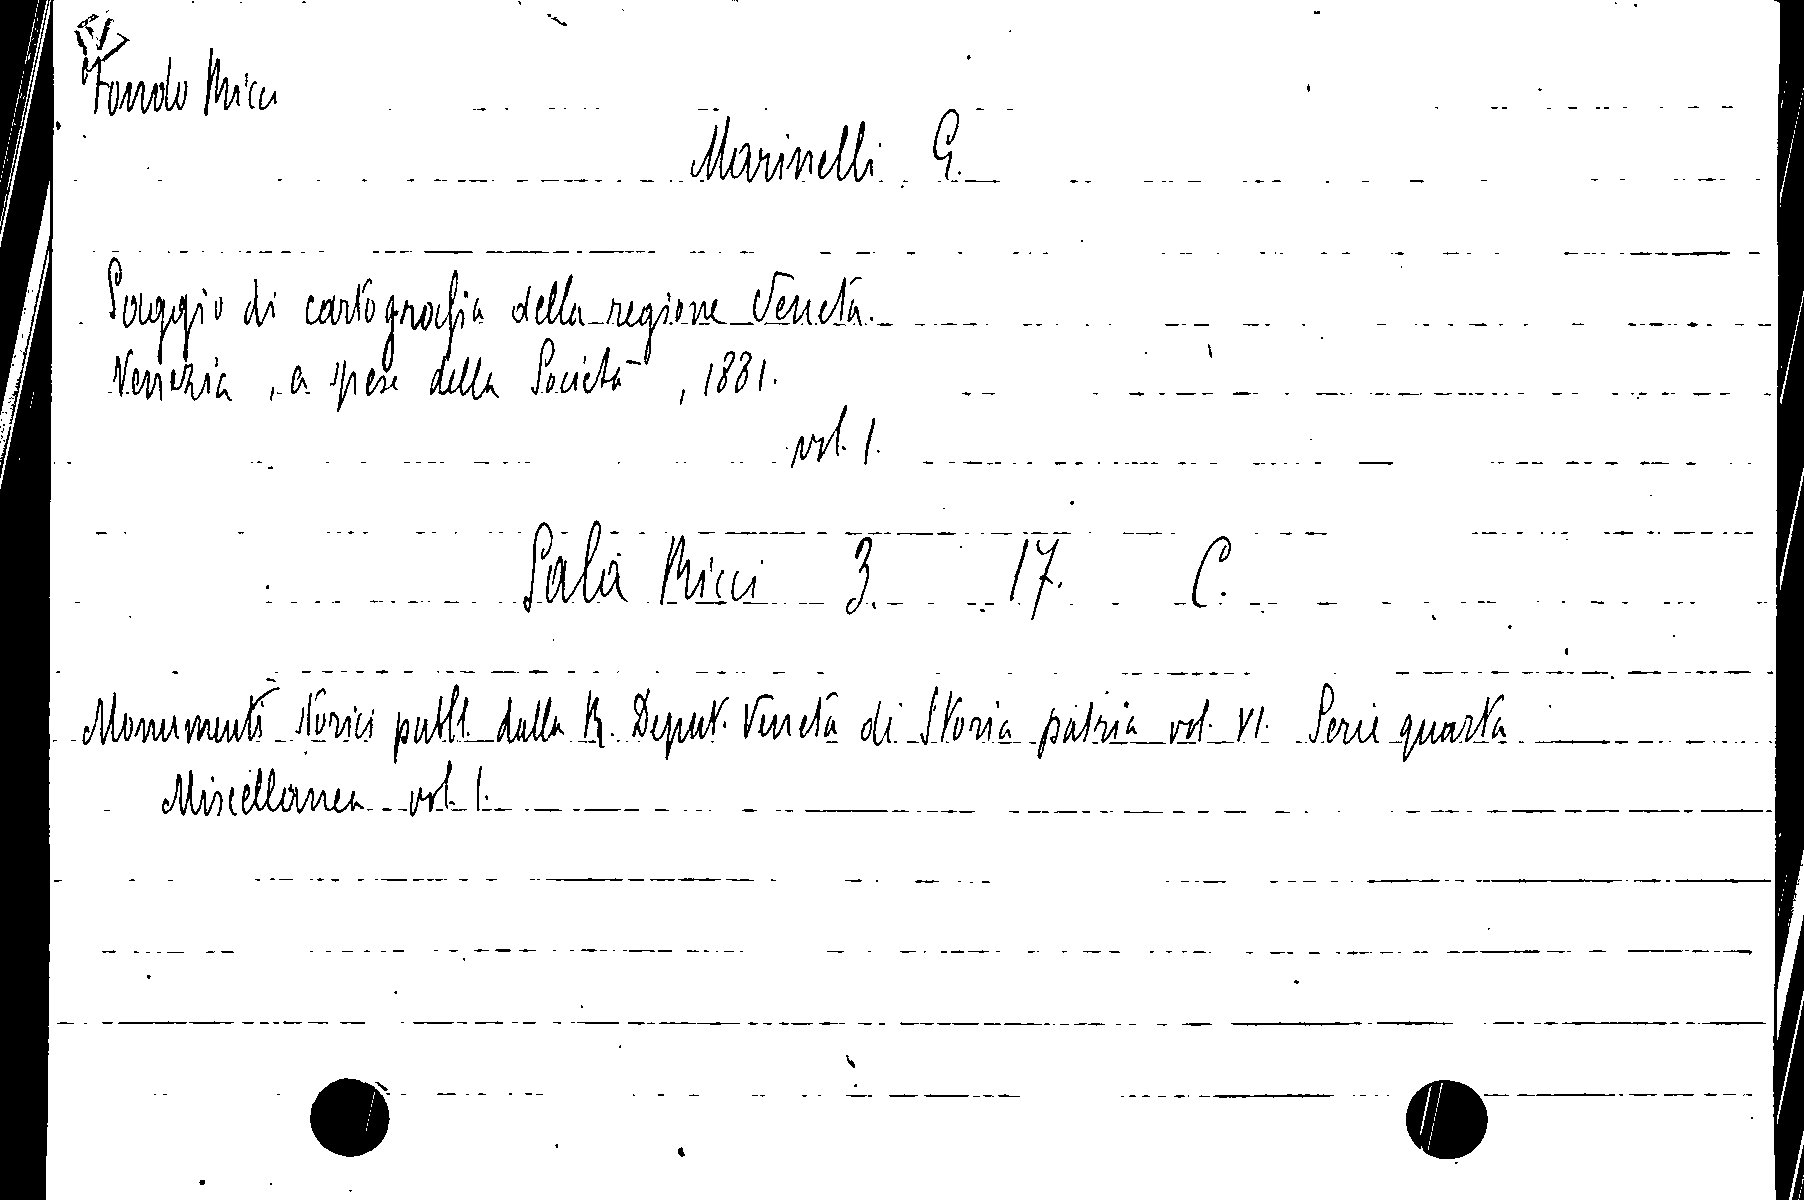 Fondo Ricci
Marinelli G.
Saggio di cartografia della regione Veneta.
Venezia, a spese della Società, 1881.
vol. 1.
Sala Ricci 3. 17. C.
Monumenti storici pubbl. dalla R. Deput. Veneta di Storia patria vol. VI. Serie quarta
Miscellanea vol. 1.